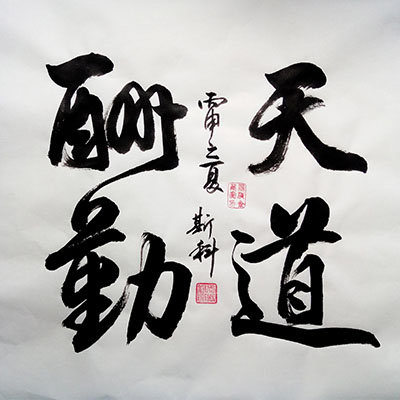 天道
酬勤
之夏
斯科